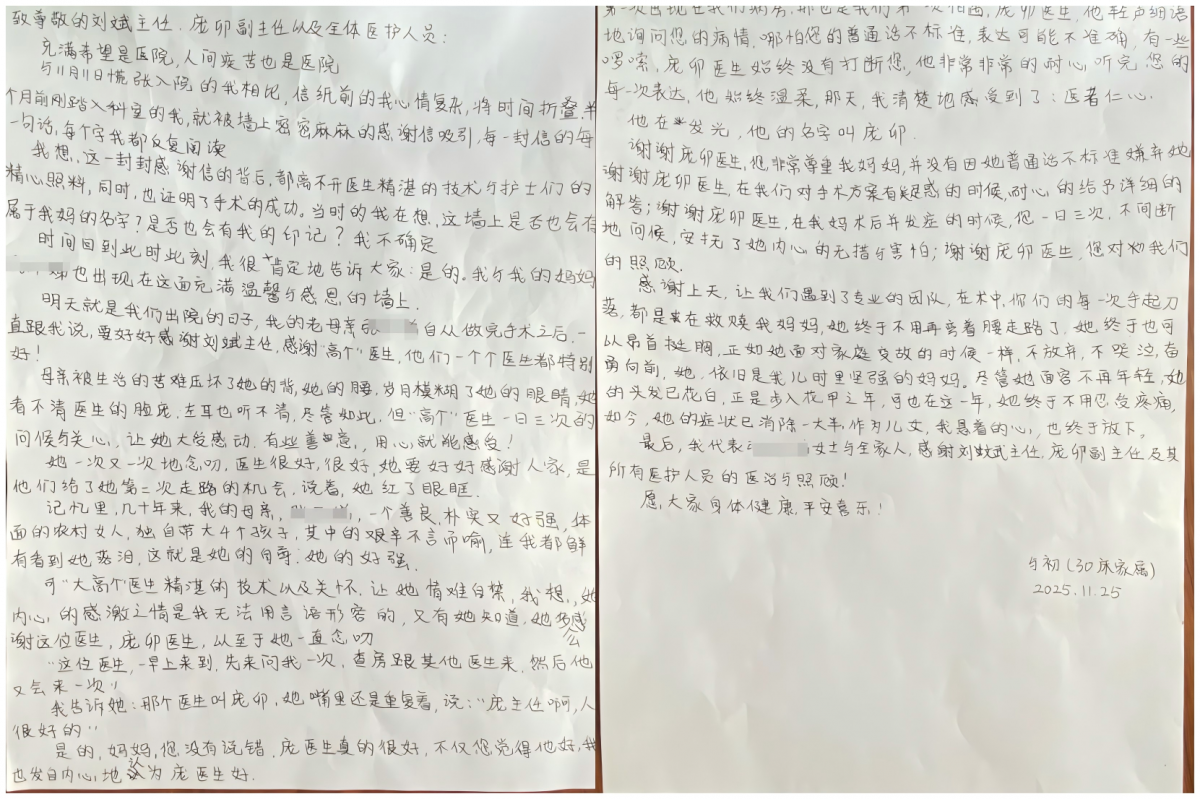 致尊敬的刘斌主任、庞卯副主任以及全体医护人员：
充满希望是医院，人间疾苦也是医院
与11月11日慌张入院的我相比，信纸前的我心情复杂，将时间折叠，半
个月前刚踏入科室的我，就被墙上密密麻麻的感谢信吸引，每一封信的每
一句话，每个字我都反复阅读
我想，这一封封感谢信的背后，都离不开医生精湛的技术与护士们的
精心照料，同时，也证明了手术的成功。当时的我在想，这墙上是否也会有
属于我妈的名字？是否也会有我的印记？我不确定
时间回到此时此刻，我很肯定地告诉大家：是的。我与我的妈妈
也出现在这面充满温馨与感恩的墙上.
明天就是我们出院的日子，我的老母亲 自从做完手术之后，一
直跟我说，要好好感谢刘斌主任，感谢"高个"医生，他们一个个医生都特别
好！
母亲被生活的苦难压坏了她的背，她的腰，岁月模糊了她的眼睛，她
看不清医生的脸庞，左耳也听不清，尽管如此，但"高个"医生一日三次的
问候与关心，让她大受感动，有些善意，用心就能感受！
她一次又一次地念叨，医生很好，很好，她要好好感谢人家，是
他们给了她第二次走路的机会，说着，她红了眼眶.
记忆里，几十年来，我的母亲，一个善良，朴实又好强，体
面的农村女人，独自带大4个孩子，其中的艰辛不言而喻，连我都鲜
有看到她落泪，这就是她的自尊，她的好强.
可"大高个"医生精湛的技术以及关怀，让她情难自禁，我想，她
内心的感激之情是我无法用言语形容的，又有她知道，她多么感
谢这位医生，庞卯医生，以至于她一直念叨
"这位医生，一早上来到，先来问我一次，查房跟其他医生来，然后他
又会来一次"
我告诉她：那个医生叫庞卯，她嘴里还是重复着，说："庞主任啊，人
很好的"
是的，妈妈，您没有说错，庞医生真的很好，不仅您觉得他好，我
也发自内心地认为庞医生好.
第一次出现在我们病房，那也是我们第一次相遇，庞卯医生，他轻声细语
地询问您的病情，哪怕您的普通话不标准，表达可能不准确，有一些
啰嗦，庞卯医生始终没有打断您，他非常非常的耐心，听完您的
每一次表达，他始终温柔，那天，我清楚地感受到了：医者仁心.
他在发光，他的名字叫庞卯.
谢谢庞卯医生，您非常尊重我妈妈，并没有因她普通话不标准嫌弃她
谢谢庞卯医生，在我们对手术方案有疑惑的时候，耐心的给予详细的
解答；谢谢庞卯医生，在我妈术后并发症的时候，您一日三次，不间断
地问候，安抚了她内心的无措与害怕；谢谢庞卯医生，您对我们
的照顾.
感谢上天，让我们遇到了专业的团队，在术中，你们的每一次手起刀
落，都是在救赎我妈妈，她终于不用再弯着腰走路了，她终于也可
以昂首挺胸，正如她面对家庭变故的时候一样，不放弃，不哭泣，奋
勇向前，她，依旧是我儿时里坚强的妈妈。尽管她面容不再年轻，她
的头发已花白，正是步入花甲之年，可也在这一年，她终于不用忍受疼痛，
如今，她的症状已消除一大半，作为儿女，我悬着的心，也终于放下。
最后，我代表 女士与全家人，感谢刘斌主任，庞卯副主任及其
所有医护人员的医治与照顾！
愿，大家身体健康，平安喜乐！
与初（30床家属）
2025.11.25